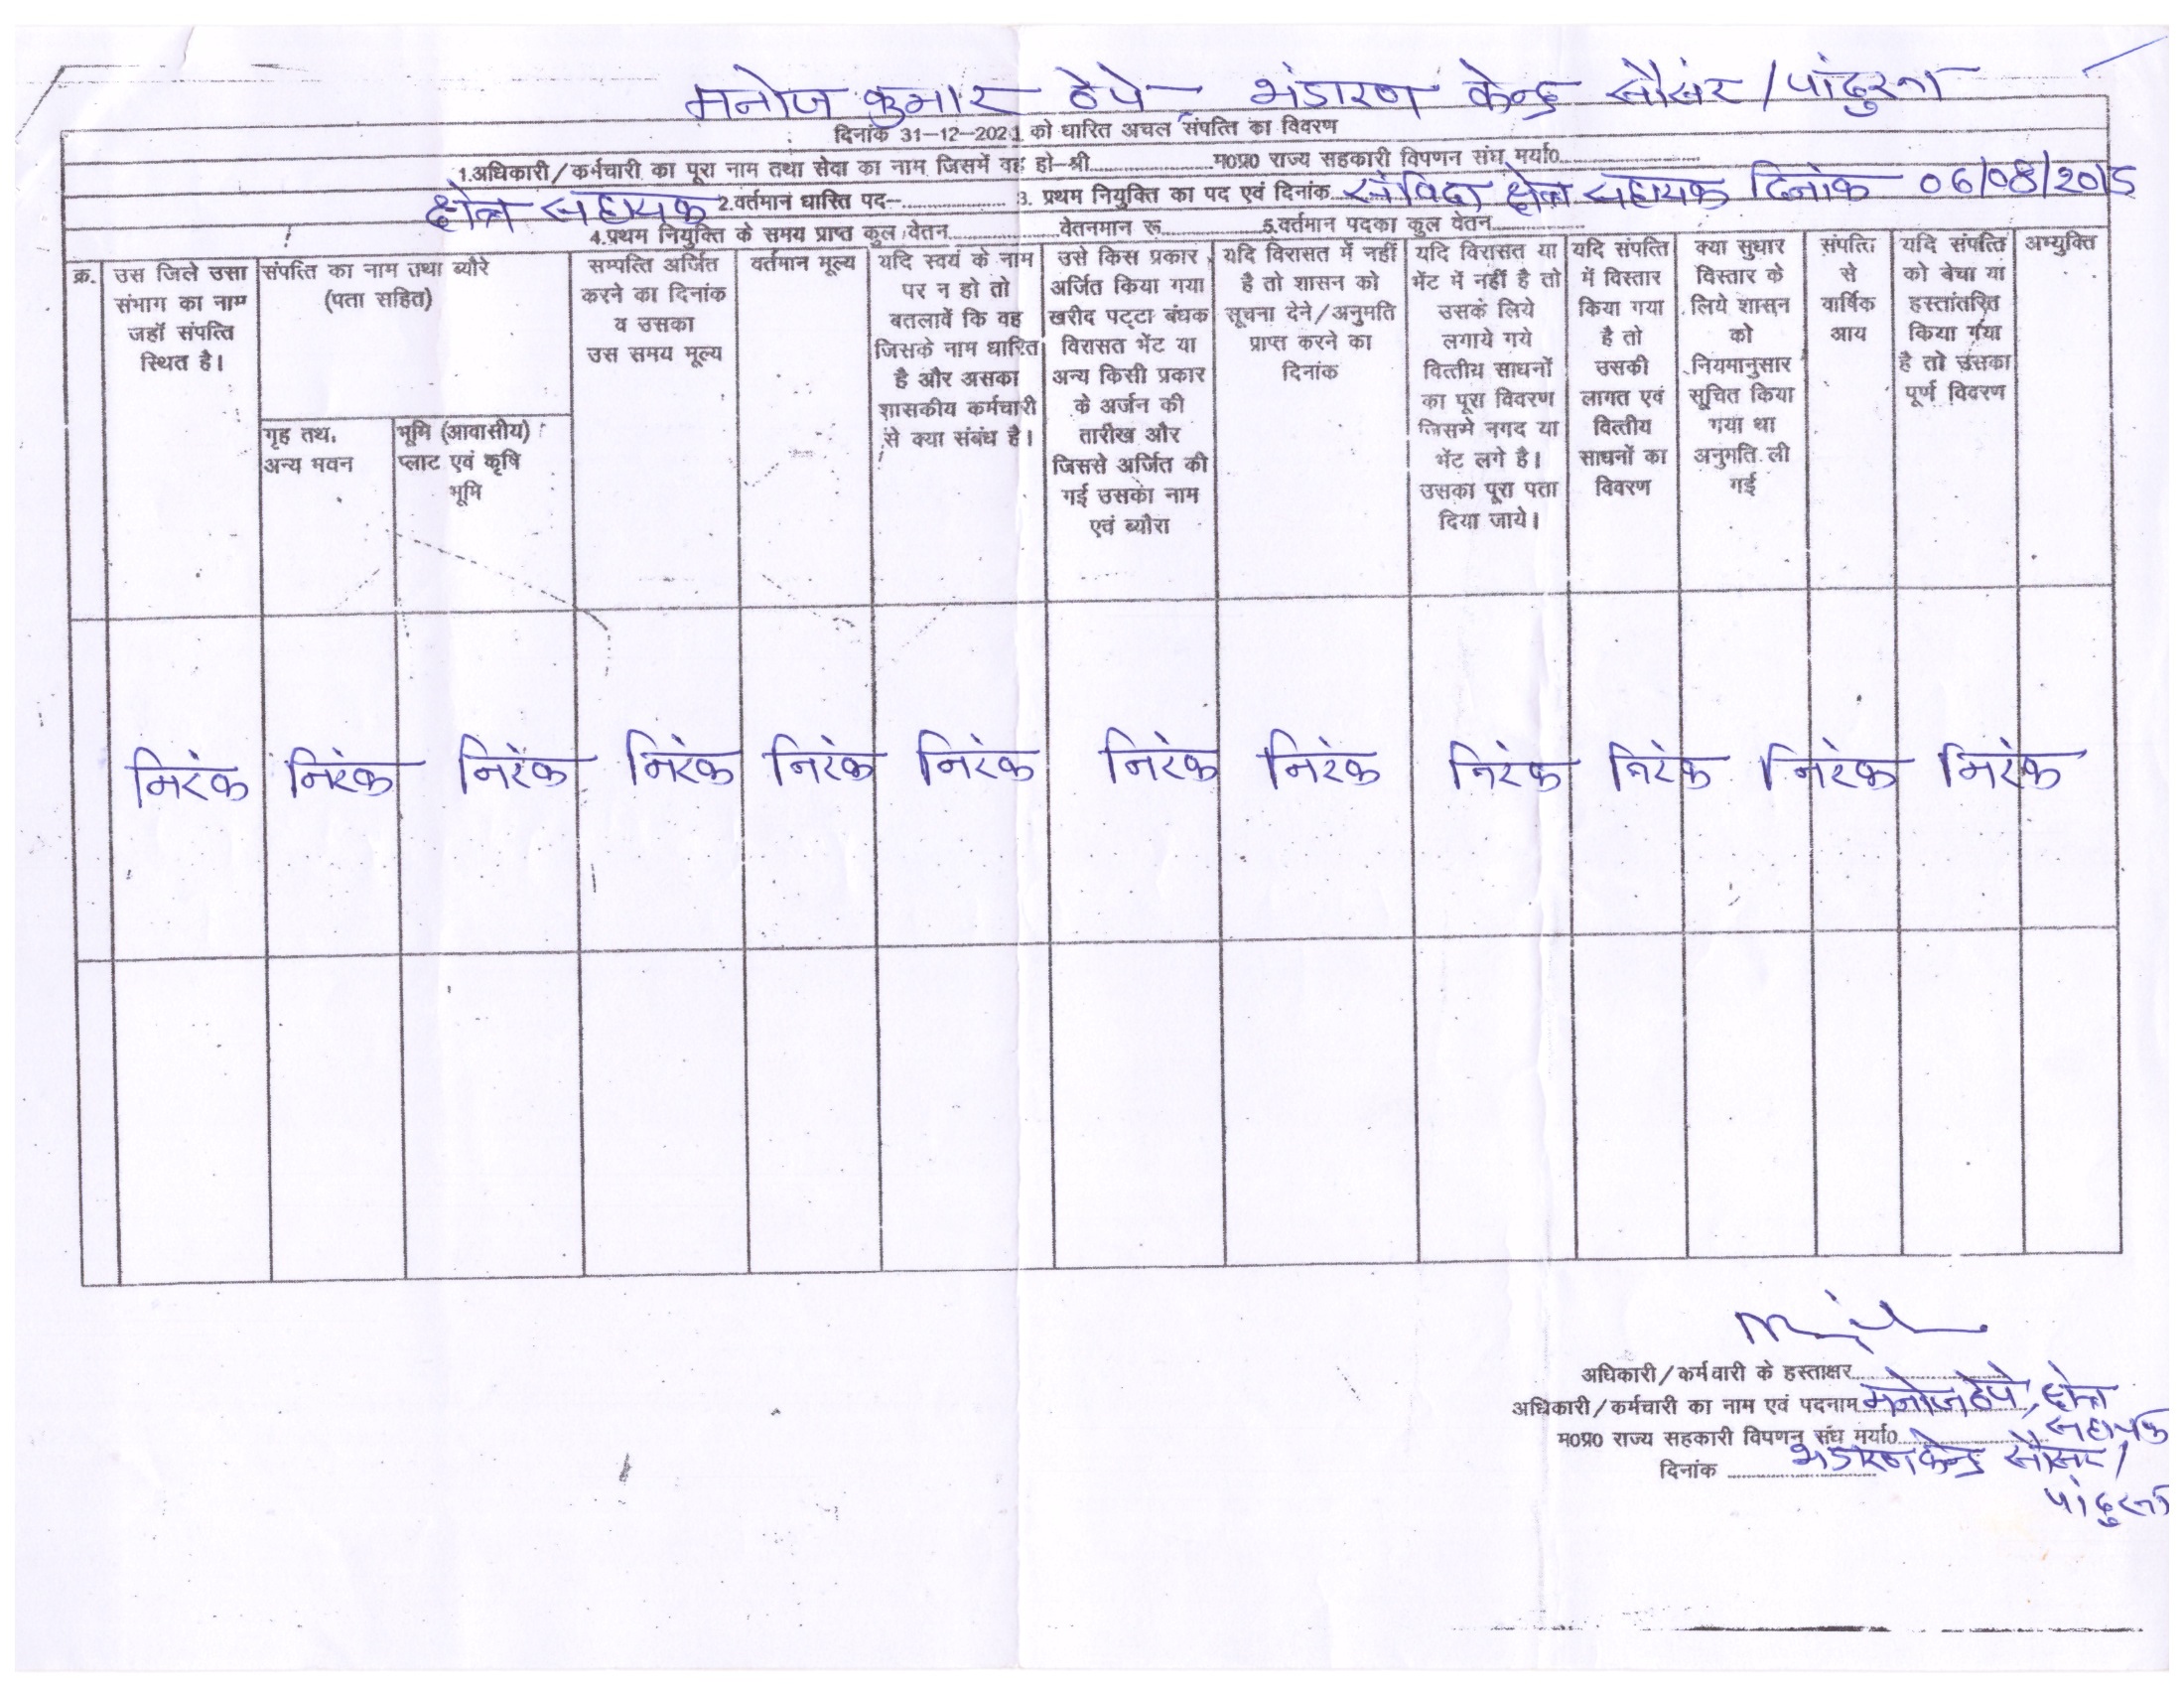 मनोज कुमार ठेपे, भंडारण केन्द्र सौसंर/पांढुरना
दिनांक 31-12-2021 को धारित अचल संपत्ति का विवरण
1.अधिकारी/कर्मचारी का पूरा नाम तथा सेवा का नाम जिसमें वह हो-श्री....................म0प्र0 राज्य सहकारी विपणन संघ मर्या0......................
क्षेत्र सहायक 2.वर्तमान धारित पद-................. 3. प्रथम नियुक्ति का पद एवं दिनांक संविदा क्षेत्र सहायक दिनांक 06/08/2015
4.प्रथम नियुक्ति के समय प्राप्त कुल वेतन..................वेतनमान रू................5.वर्तमान पदका कुल वेतन...............
क्र.
उस जिले उसा
संभाग का नाम
जहॉ संपत्ति
स्थित है।
संपत्ति का नाम तथा ब्यौरे
(पता सहित)
गृह तथ.
अन्य भवन
भूमि (आवासीय)
प्लाट एवं कृषि
भूमि
सम्पत्ति अर्जित
करने का दिनांक
व उसका
उस समय मूल्य
वर्तमान मूल्य
यदि स्वयं के नाम
पर न हो तो
बतलावें कि वह
जिसके नाम धारित
है और असका
शासकीय कर्मचारी
से क्या संबंध है।
उसे किस प्रकार
अर्जित किया गया
खरीद पट्टा बंधक
विरासत भेंट या
अन्य किसी प्रकार
के अर्जन की
तारीख और
जिससे अर्जित की
गई उसका नाम
एवं ब्यौरा
यदि विरासत में नहीं
है तो शासन को
सूचना देने/अनुमति
प्राप्त करने का
दिनांक
यदि विरासत या
भेंट में नहीं है तो
उसके लिये
लगाये गये
वित्तीय साधनों
का पूरा विवरण
जिसमे नगद या
भेंट लगे है।
उसका पूरा पता
दिया जाये।
यदि संपत्ति
में विस्तार
किया गया
है तो
उसकी
लागत एवं
वित्तीय
साधनों का
विवरण
क्या सुधार
विस्तार के
लिये शासन
को
नियमानुसार
सूचित किया
गया था
अनुमति ली
गई
संपत्ति
से
वार्षिक
आय
यदि संपत्ति
को बेचा या
हस्तांतरित
किया गया
है तो उसका
पूर्ण विवरण
अभ्युक्ति
निरंक निरंक निरंक निरंक निरंक निरंक निरंक निरंक निरंक निरंक निरंक निरंक
अधिकारी/कर्मचारी के हस्ताक्षर................
अधिकारी/कर्मचारी का नाम एवं पदनाम मनोज ठेपे, क्षेत्र
सहायक
म0प्र0 राज्य सहकारी विपणन संघ मर्या0....................
भंडारण केन्द्र सौसर/
दिनांक ....................
पांढुरना